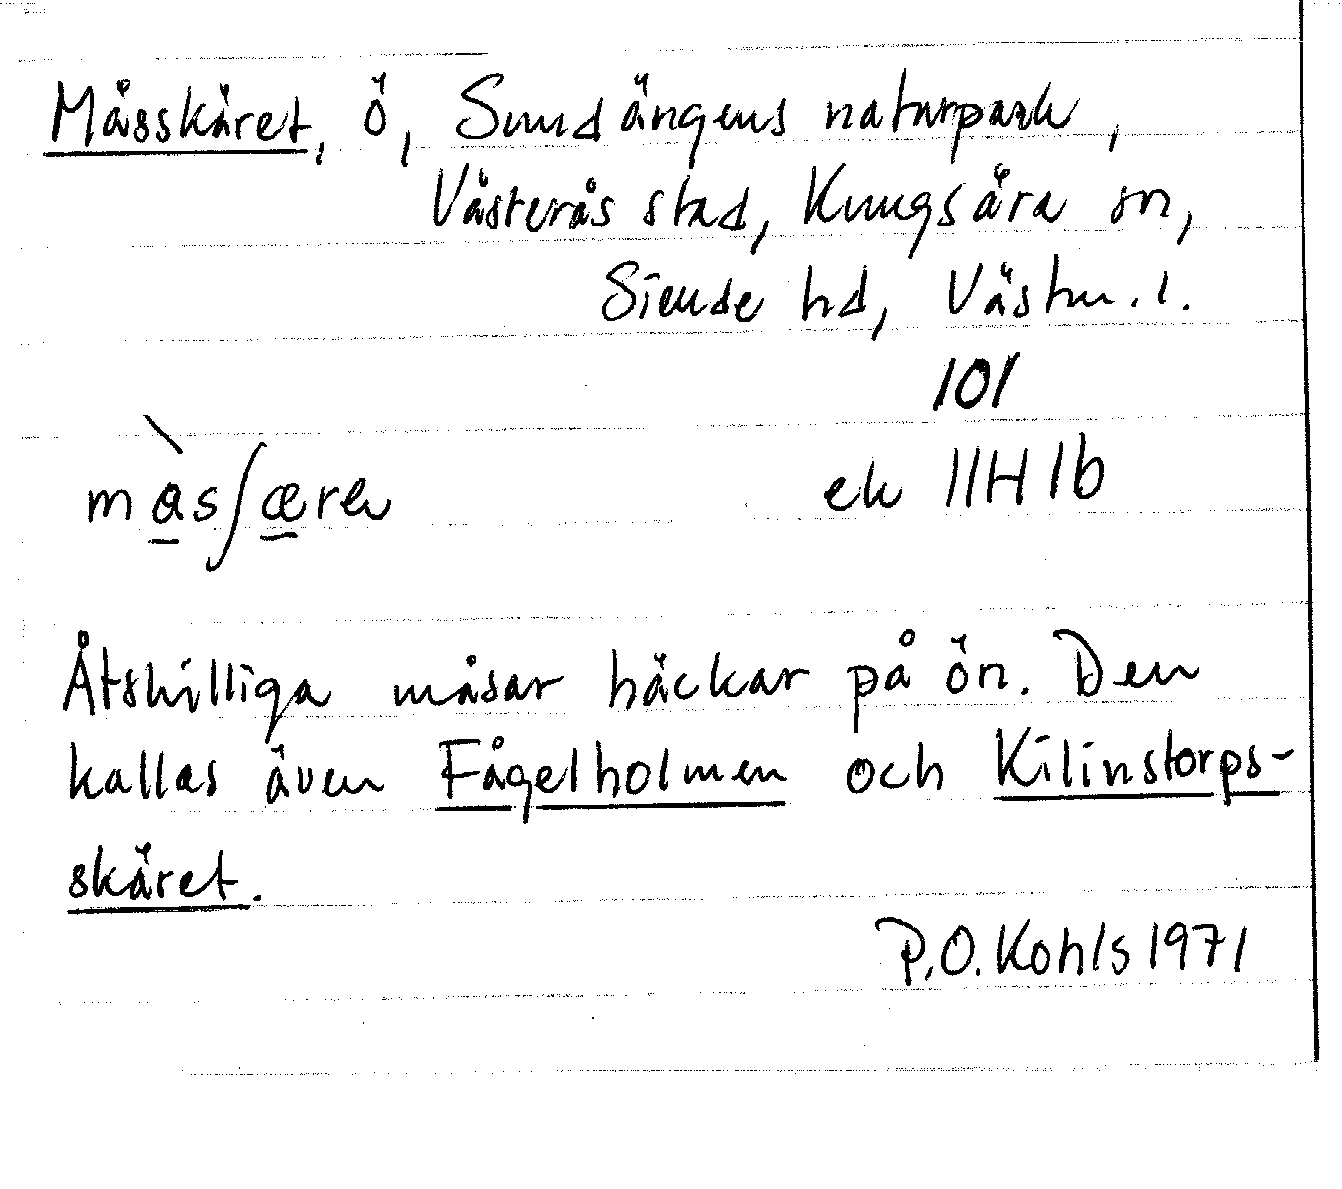 Måsskäret, ö, Sundängens naturpark,
Västerås stad, Kungsåra sn,
Siende hd, Västm. l.
101
màsʃæreɩ ek 11H1b
Åtskilliga måsar häckar på ön. Den
kallas även Fågelholmen och Kilinstorps-
skäret.
P.O. Kohls 1971